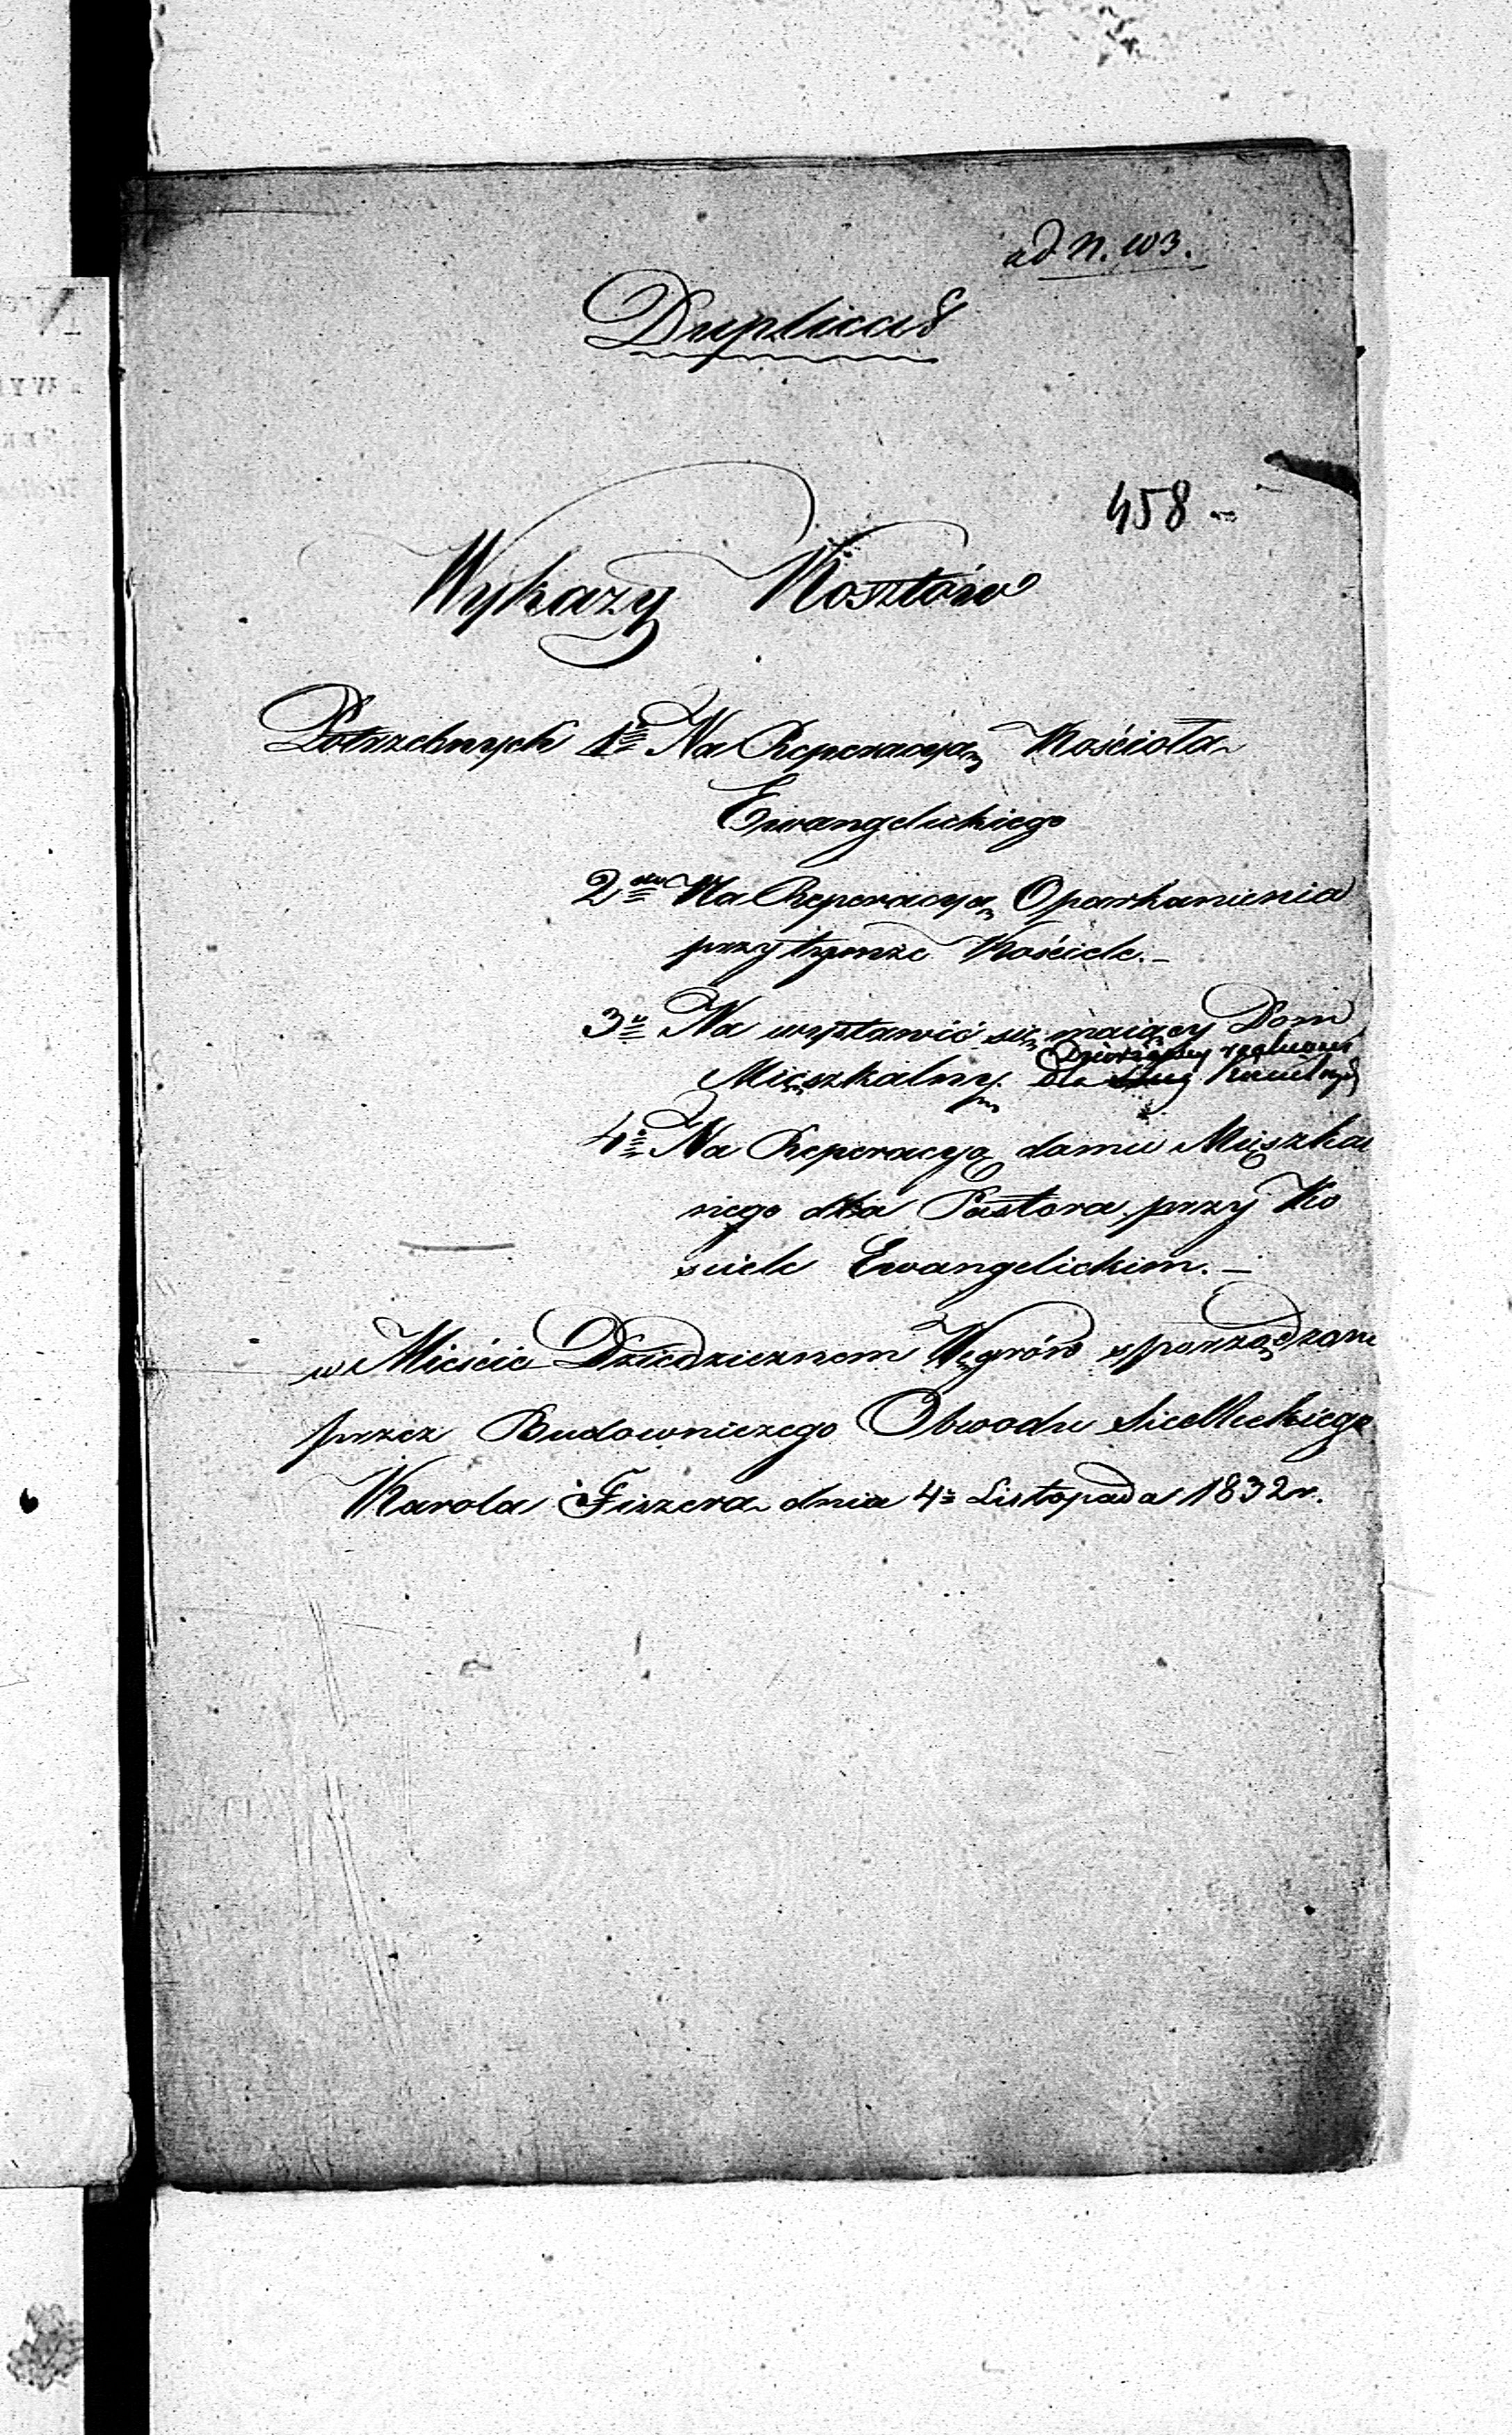 ad N. 103.
Duplicat
458 -
Wykazy Kosztów
Potrzebnych 1o Na Reperacyą Kościoła
Ewangelickiego
2do Na Reperacyą Oparkanienia
przy tymże Kościele. -
3o Na wystawić się maiący Dom
Mięszkalny dla
4o Na Reperacyą domu Mięszkal
nego dla Pastora przy Ko
sciele Ewangelickim. -
w Mieście Dziedzicznem Węgrów sporządzone
przez Budowniczego Obwodu Siedleckiego
Karola Fiszera dnia 4o Listopada 1832 r.